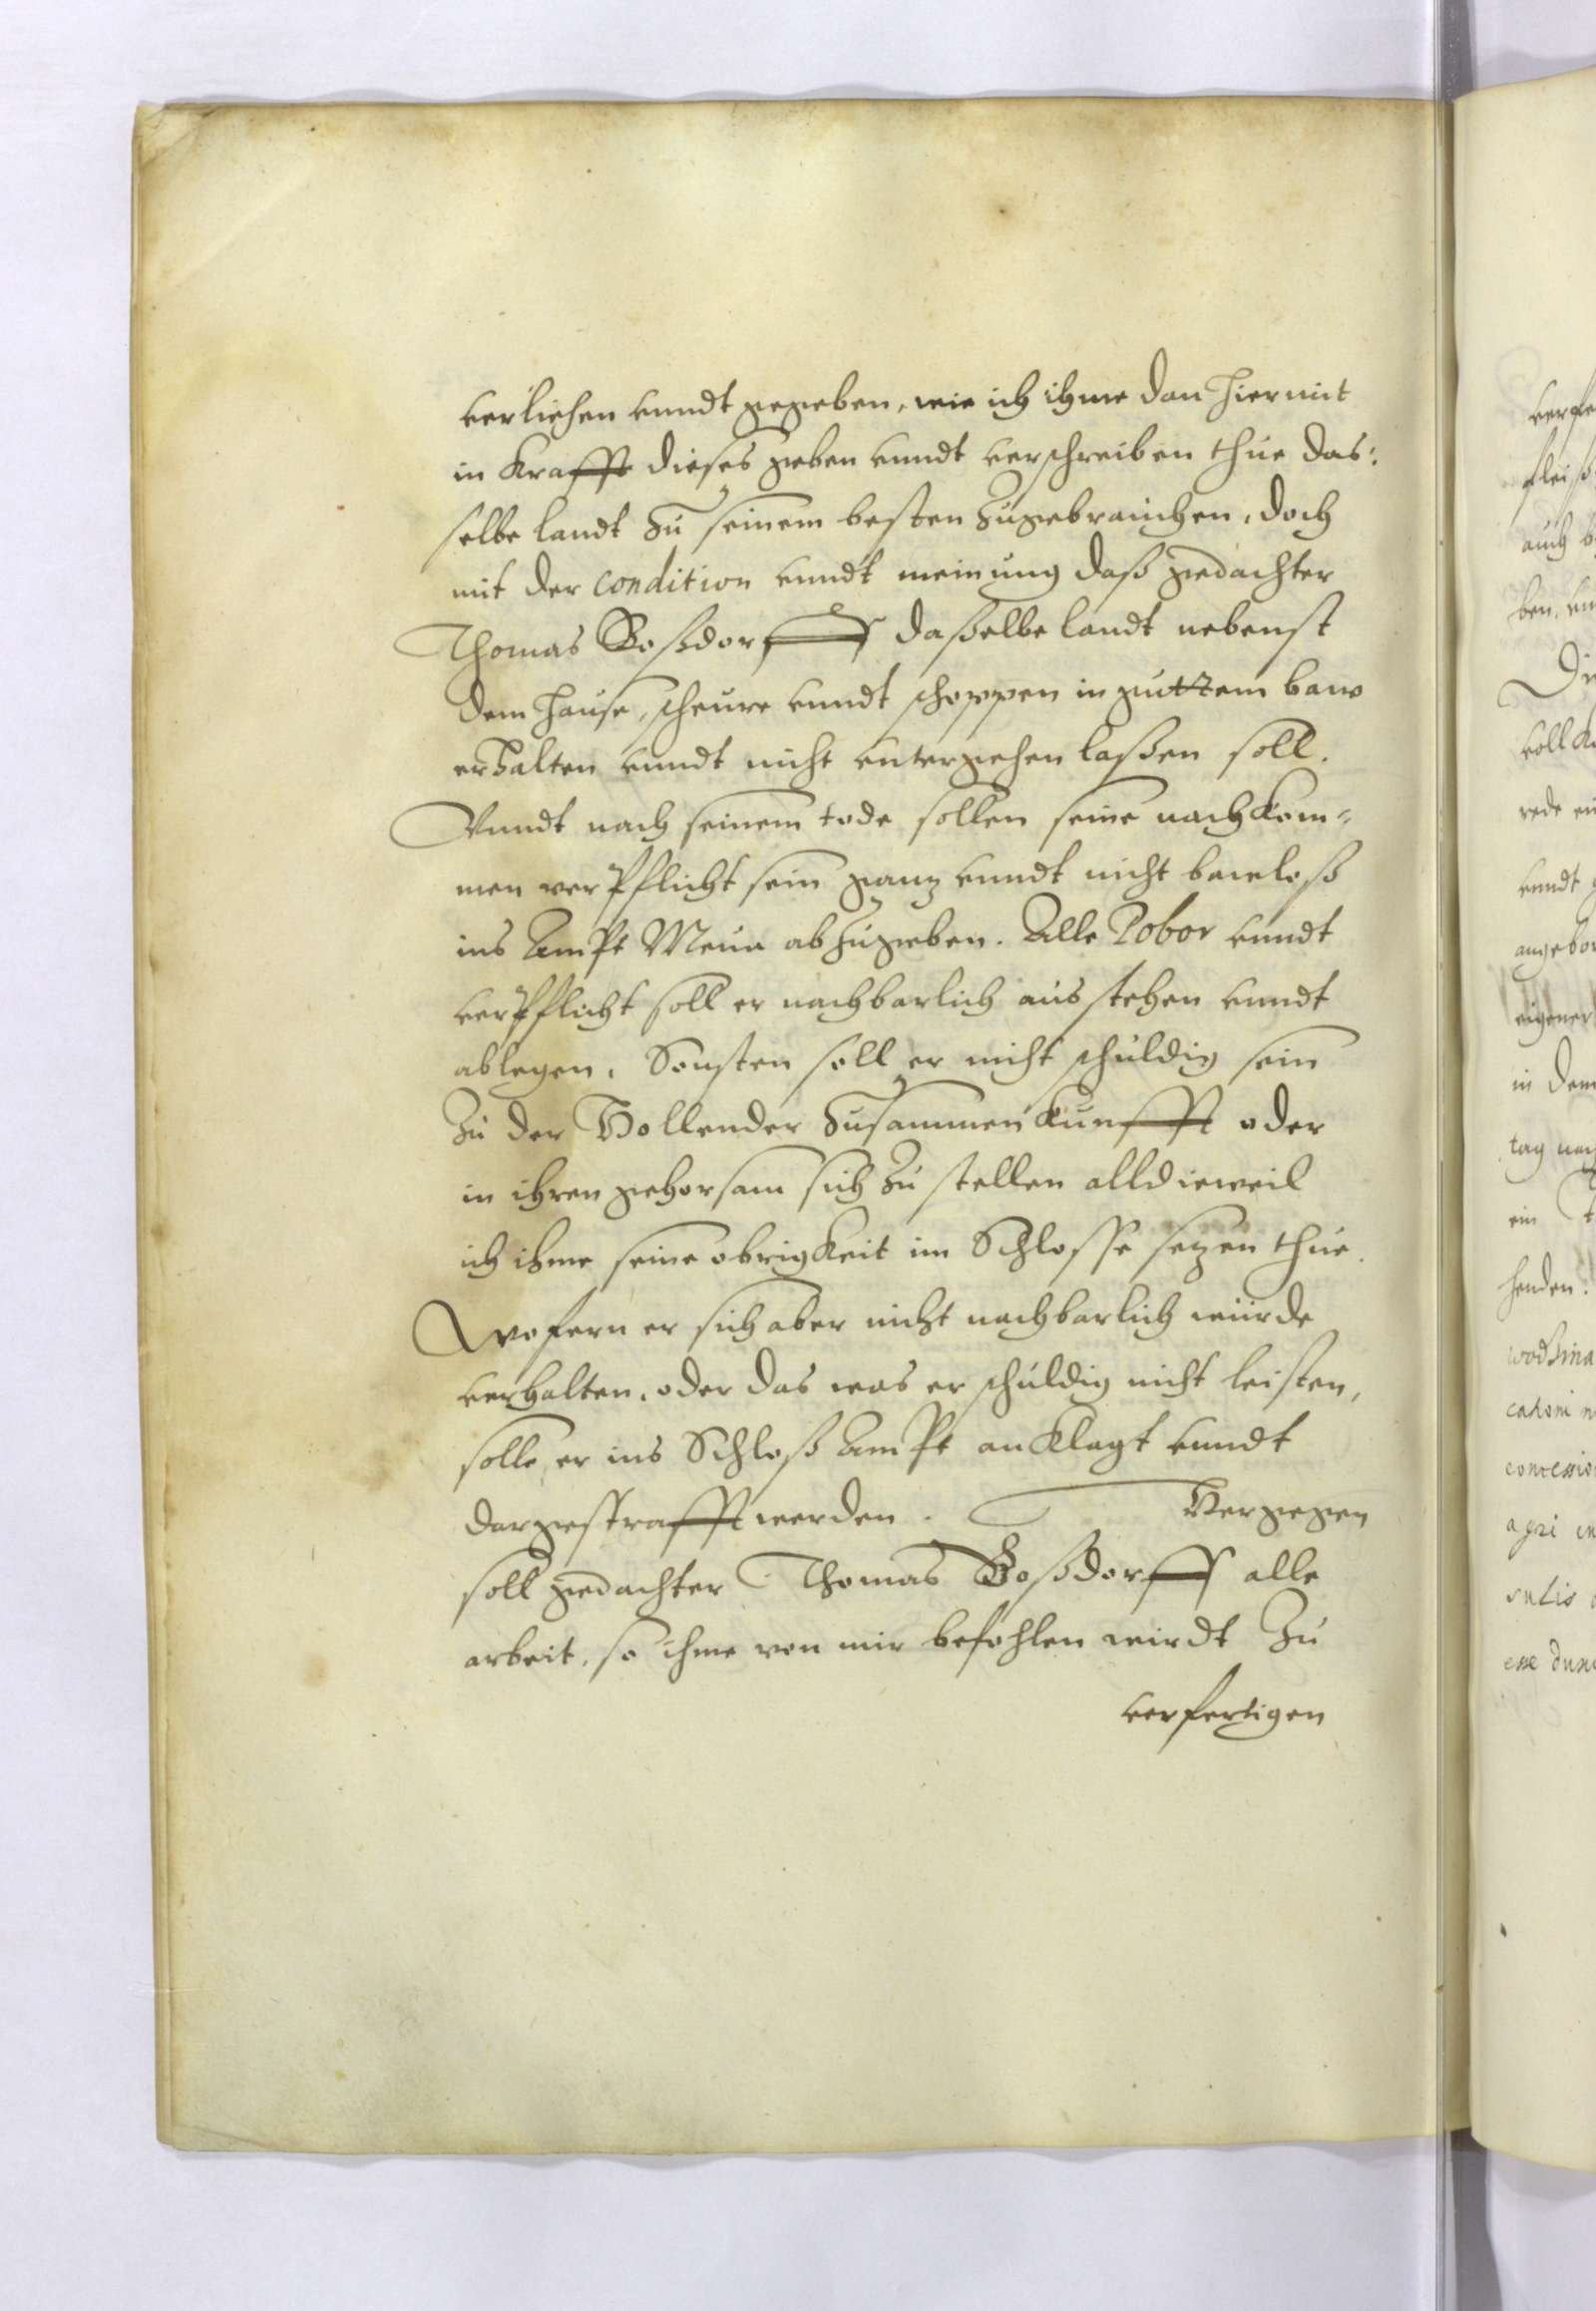 verliehen vnndt gegeben, wie ich ihme dan hiermit
in Krafft dieses geben vnndt verschreiben thue das:
selbe landt zu seinem besten zugebrauchen, doch
mit der condition vnndt meinung daß gedachter
Thomas Boßdorff daßelbe landt nebenst
dem hause, scheure vnndt schoppen in guttem baw
erhalten vnndt nicht untergehen laßen soll.
Vnndt nach seinem tode sollen seine nachkom-
men verpflicht sein ganz vnndt nicht bauloß
ins Ampt abzugeben. Alle vnndt
verpflicht soll er nachbarlich ausstehen vnndt
ablegen. Sonsten soll er nicht schuldig sein
zu der Hollender zusammenkunfft oder
in ihren gehorsam sich zu stellen alldieweil
ich ihme seine obrigkeit im Schlosse setzen thue.
Wofern er sich aber nicht nachbarlich würde
verhalten, oder das was er schuldig nicht leisten,
solle er ins Schloß Ampt anklagt vnndt
dar gestrafft werden. Hergegen
soll gedachter Thomas Boßdorff alle
arbeit, so ihme von mir befohlen wirdt zu
verfertigen